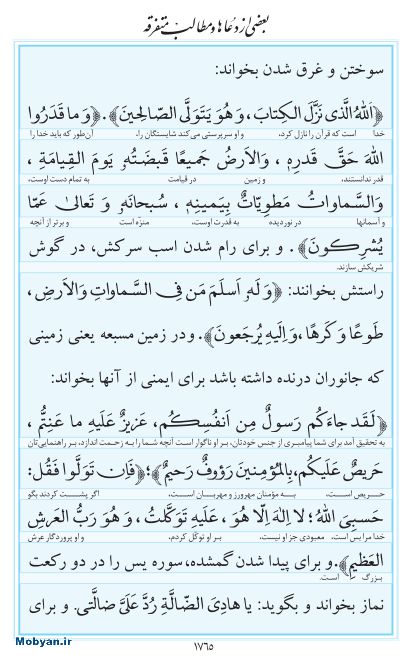 بعضی از دعاها و مطالب متفرقه
سوختن و غرق شدن بخواند:
﴿اَللّٰهُ الَّذی نَزَّلَ الْکِتابَ، وَهُوَ یَتَوَلَّی الصّالِحینَ﴾. ﴿وَما قَدَرُوا
خدا است که قرآن را نازل کرد، و او سرپرستی می‌کند شایستگان را، آن‌طور که باید خدا را
اللّٰهَ حَقَّ قَدرِهٖ، وَالاَرضُ جَمیعًا قَبضَتُهُ یَومَ القِیامَةِ،
قدر ندانستند، و زمین در قیامت به تمام دست اوست،
وَالسَّماواتُ مَطوِیّاتٌ بِیَمینِهٖ، سُبحانَهُ وَ تَعالیٰ عَمّا
و آسمانها در نوردیده به قدرت اوست، منزّه است و برتر از آنچه
یُشرِکونَ﴾. و برای رام شدن اسب سرکش، در گوش
شریکش سازند.
راستش بخوانند: ﴿وَلَهُ اَسلَمَ مَن فِی السَّماواتِ وَالاَرضِ،
طَوعًا وَکَرهًا، وَاِلَیهِ یُرجَعونَ﴾. و در زمین مسبعه یعنی زمینی
که جانوران درنده داشته باشد برای ایمنی از آنها بخواند:
﴿لَقَد جاءَکُم رَسولٌ مِن اَنفُسِکُم، عَزیزٌ عَلَیهِ ما عَنِتُّم،
به تحقیق آمد برای شما پیامبری از جنس خودتان، بر او ناگوار است آنچه شما را به زحمت اندازد، بر راهنمایی‌تان
حَریصٌ عَلَیکُم، بِالمُؤمِنینَ رَؤوفٌ رَحیمٌ﴾؛ ﴿فَاِن تَوَلَّوا فَقُل:
حریص است، به مؤمنان مهرورز و مهربان است، اگر پشت کردند بگو
حَسبِیَ اللّٰهُ؛ لا اِلٰهَ اِلّا هُوَ، عَلَیهِ تَوَکَّلتُ، وَهُوَ رَبُّ العَرشِ
خدا مرا بس است، معبودی جز او نیست، بر او توکل کردم، و او پروردگار عرش
العَظیمِ﴾. و برای پیدا شدن گمشده، سوره یس را در دو رکعت
بزرگ است.
نماز بخواند و بگوید: یا هادِیَ الضّالَّةِ رُدَّ عَلَیَّ ضالَّتی. و برای
۱۷۶۵
Mobyan.ir